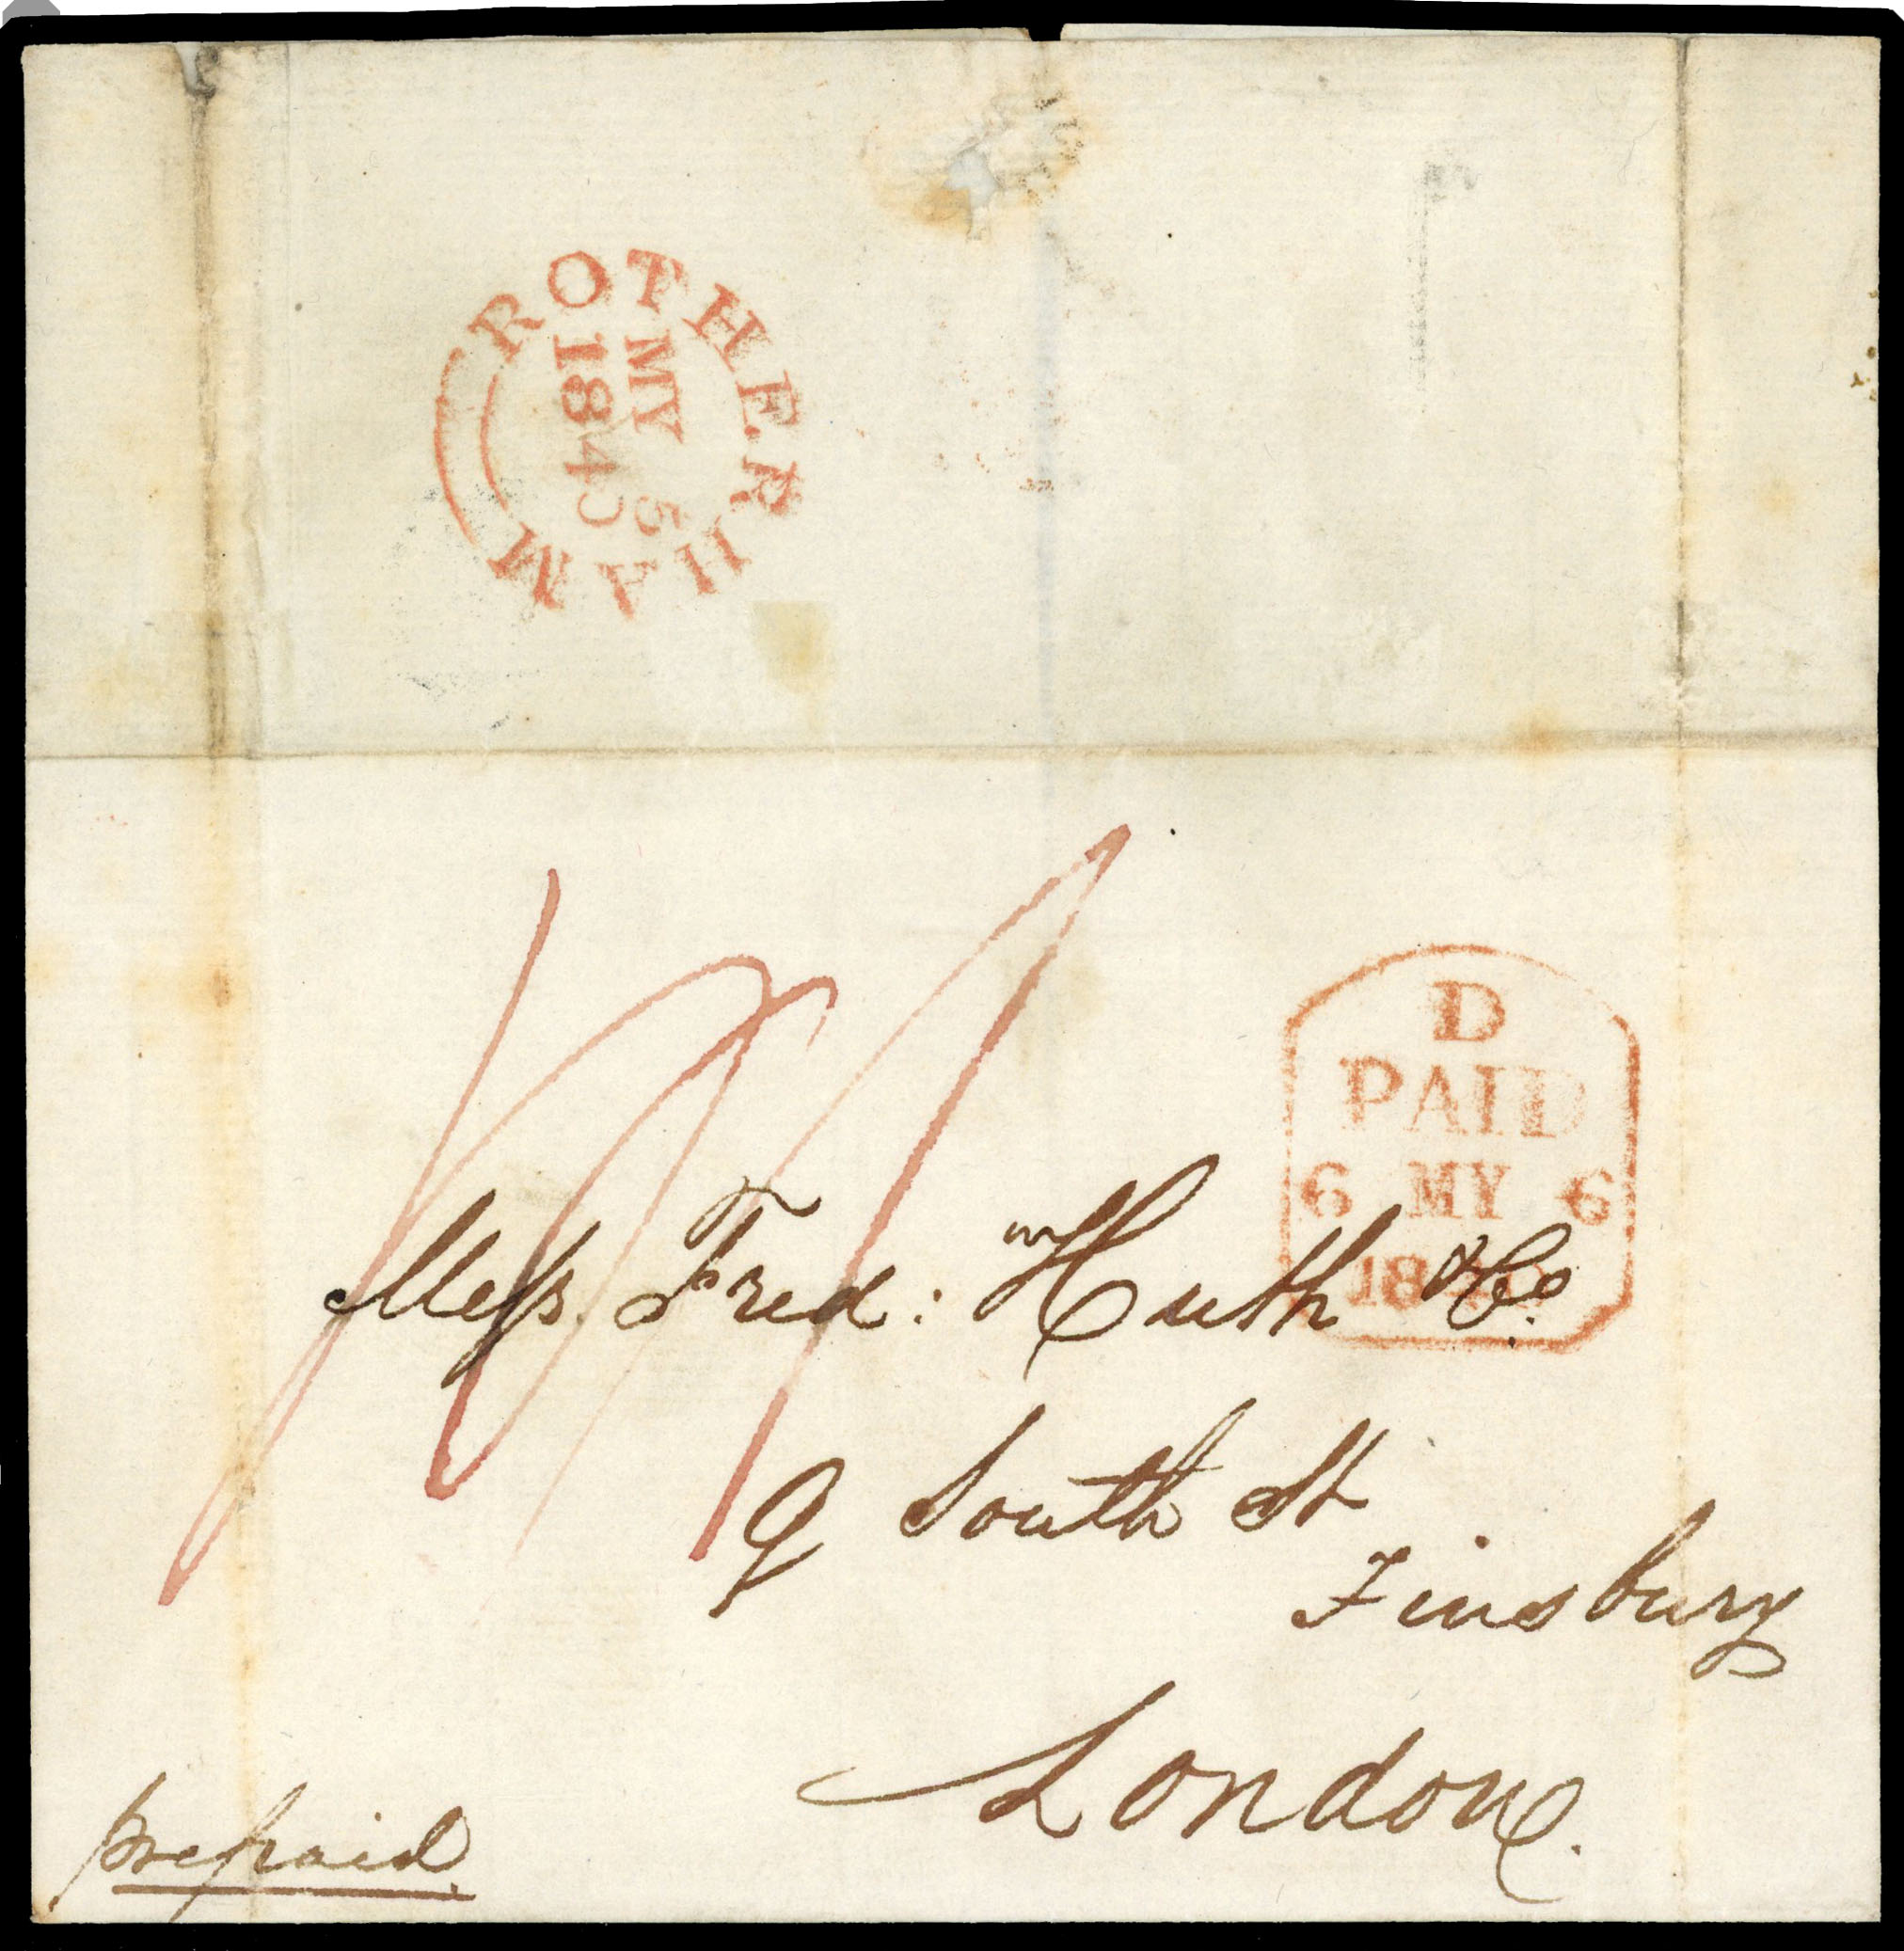 ROTHERHAM
MY 5
184
D
PAID
6 MY 6
18
Mefs. Fred: Huth & Co.
9 South St
Finsbury
London.
prepaid.